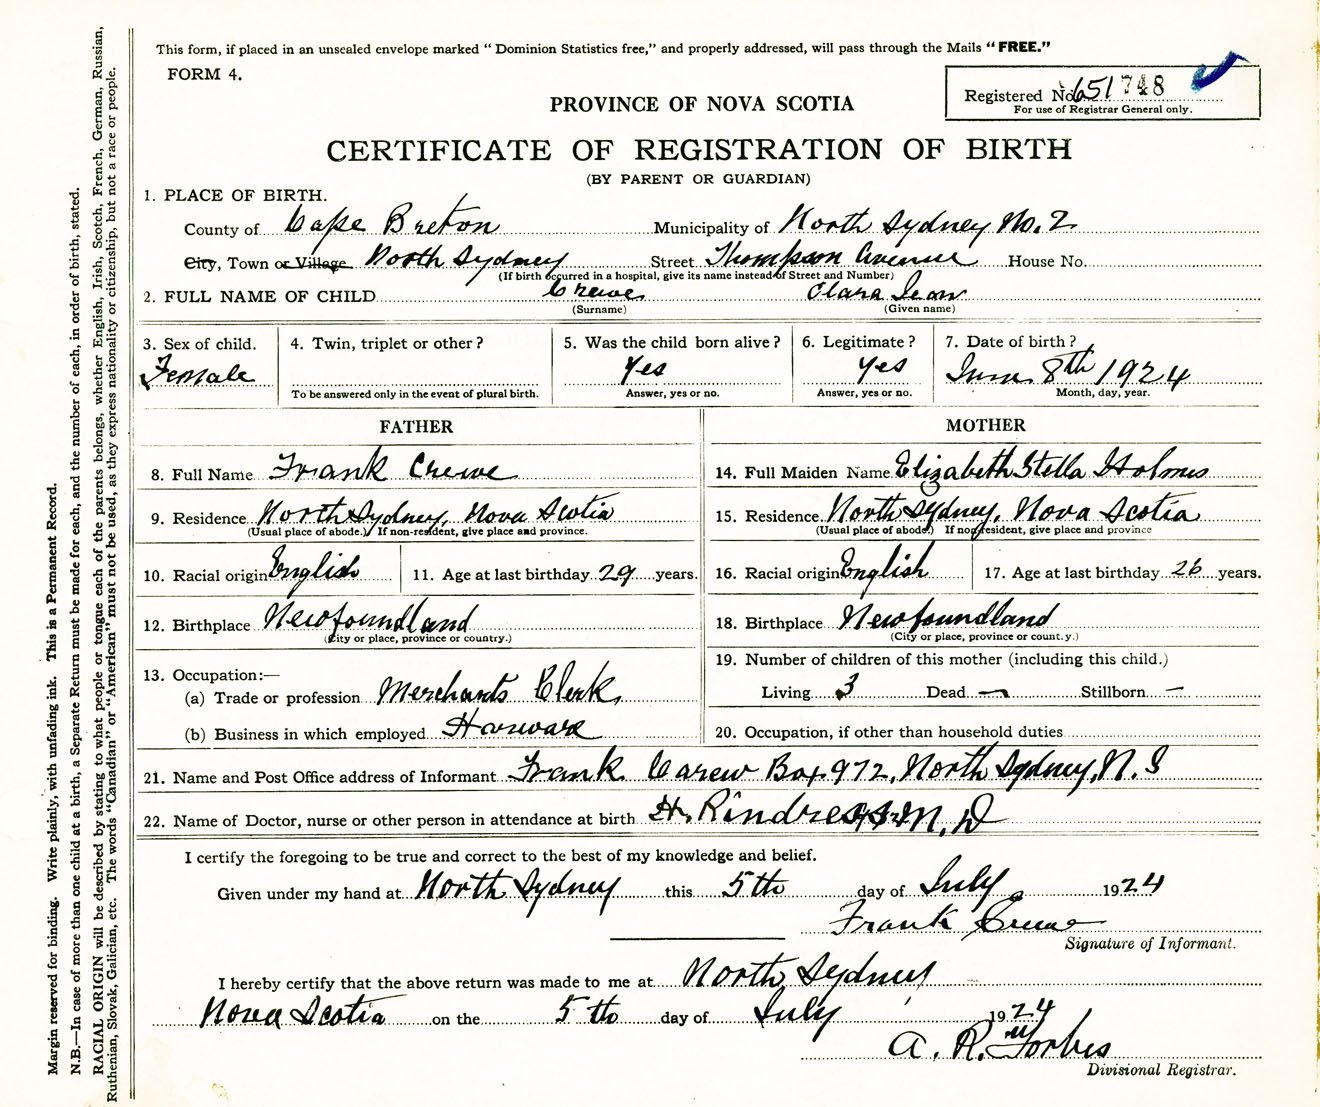 This form, if placed in an unsealed envelope marked "Dominion Statistics free," and properly addressed, will pass through the Mails "FREE."
FORM 4.
Registered No. 651748
For use of Registrar General only.
PROVINCE OF NOVA SCOTIA
CERTIFICATE OF REGISTRATION OF BIRTH
(BY PARENT OR GUARDIAN)
1. PLACE OF BIRTH.
County of Cape Breton Municipality of North Sydney No. 2
City, Town or Village North Sydney Street Thompson Avenue House No.
(If birth occurred in a hospital, give its name instead of Street and Number)
2. FULL NAME OF CHILD Crewe Clara Jean
(Surname) (Given name)
3. Sex of child. 4. Twin, triplet or other? 5. Was the child born alive? 6. Legitimate? 7. Date of birth?
Female Yes Yes June 8th 1924
To be answered only in the event of plural birth. Answer, yes or no. Answer, yes or no. Month, day, year.
FATHER
8. Full Name Frank Crewe
9. Residence North Sydney, Nova Scotia
(Usual place of abode.) If non-resident, give place and province.
10. Racial origin English 11. Age at last birthday 29 years.
12. Birthplace Newfoundland
(City or place, province or country.)
13. Occupation:—
(a) Trade or profession Merchants Clerk,
(b) Business in which employed
MOTHER
14. Full Maiden Name Elizabeth Stella Holmes
15. Residence North Sydney, Nova Scotia
(Usual place of abode.) If non-resident, give place and province
16. Racial origin English 17. Age at last birthday 26 years.
18. Birthplace Newfoundland
(City or place, province or county.)
19. Number of children of this mother (including this child.)
Living 3 Dead — Stillborn —
20. Occupation, if other than household duties
21. Name and Post Office address of Informant Frank Carew Box 972, North Sydney, N.S
22. Name of Doctor, nurse or other person in attendance at birth M.D
I certify the foregoing to be true and correct to the best of my knowledge and belief.
Given under my hand at North Sydney this 5th day of July 1924
Frank Crewe
Signature of Informant.
I hereby certify that the above return was made to me at North Sydney
Nova Scotia on the 5th day of July 1924
A. R. Forbes
Divisional Registrar.
Margin reserved for binding. Write plainly, with unfading ink. This is a Permanent Record.
N.B.—In case of more than one child at a birth, a Separate Return must be made for each, and the number of each, in order of birth, stated.
RACIAL ORIGIN will be described by stating to what people or tongue each of the parents belongs, whether English, Irish, Scotch, French, German, Russian,
Ruthenian, Slovak, Galician, etc. The words "Canadian" or "American" must not be used, as they express nationality or citizenship, but not a race or people.